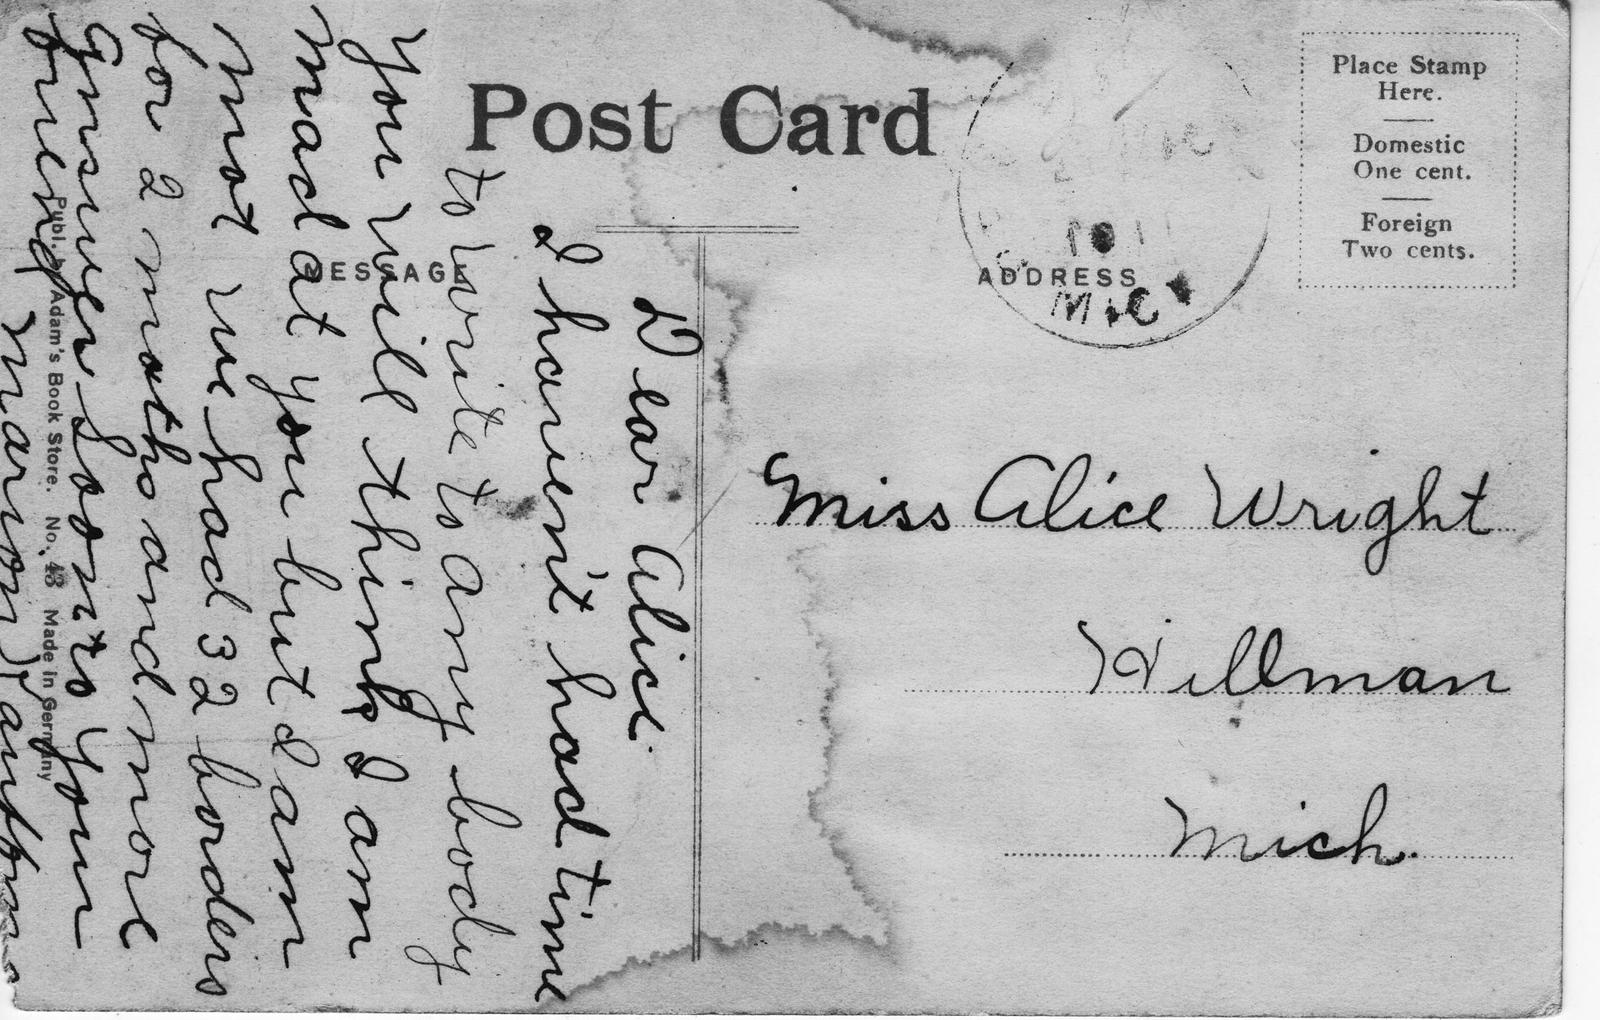 Post Card
Place Stamp
Here.
Domestic
One cent.
Foreign
Two cents.
MESSAGE
ADDRESS
1911
MICH
Miss Alice Wright
Hillman
Mich.
Dear Alice
I haven't had time
to write to any body
you will think I am
mad at you but I am
not we had 32 borders
for 2 moths and more
Answer soon to your
friend
Marion
Publ. by Adam's Book Store. No. 43 Made in Germany